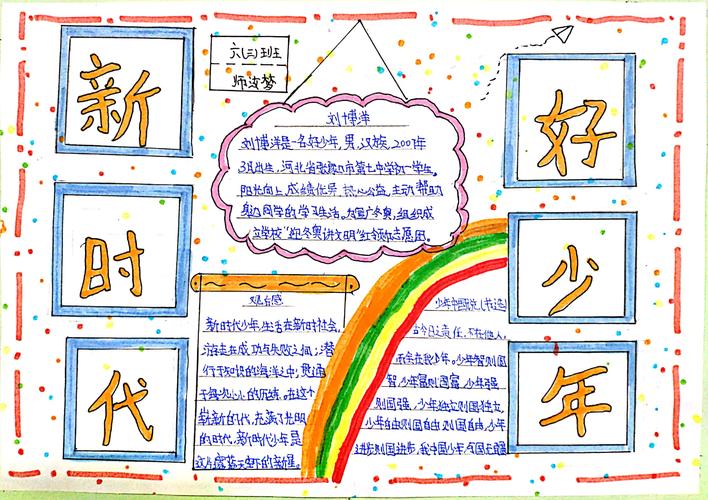 新时代
好少年
六(三)班
师汝梦
刘博洋
刘博洋是一名好少年,男,汉族,2007年
3月出生,河北省张家口市第七中学初一学生。
阳光向上,成绩优异,热心公益,主动帮助
身边同学的学习生活。为推广冬奥,组织成
立学校"迎冬奥讲文明"红领巾志愿团。
观后感
新时代少年,生活在新时社会,
游走在成功与失败之间,潜
行于知识的海洋之中,
于每块心的历练。在这个
崭新的代,充满了光明
的时代,新时代少年是
这片蓝天下的新星。
少年中国说(节选)
故今日之责任,不在他人,
而全在我少年。少年智则国
智,少年富则国富,少年强
则国强,少年独立则国独立,
少年自由则国自由,少年
进步则国进步,我中国少年,与国无疆